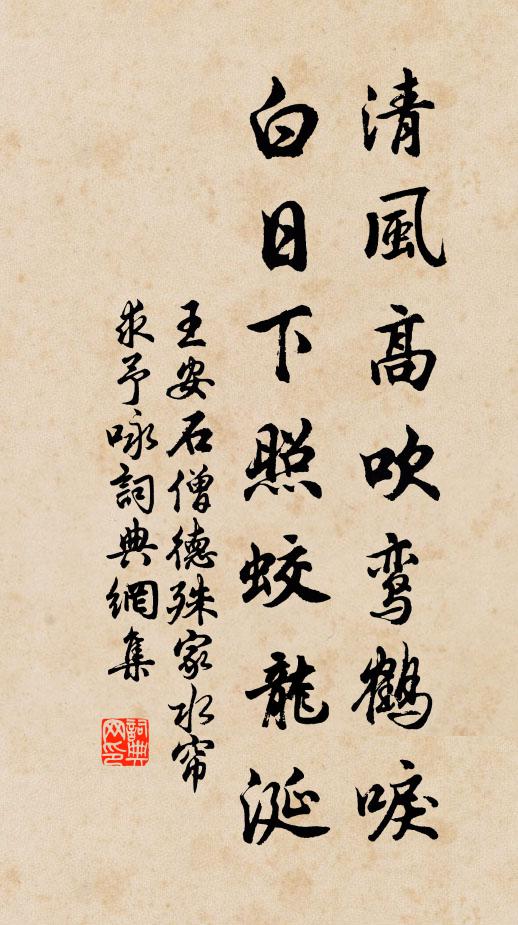 清風高吹鸾鶴唳
白日下照蛟龍涎
王安石僧德殊家水帘
求予咏詞典網集
詞典
网印